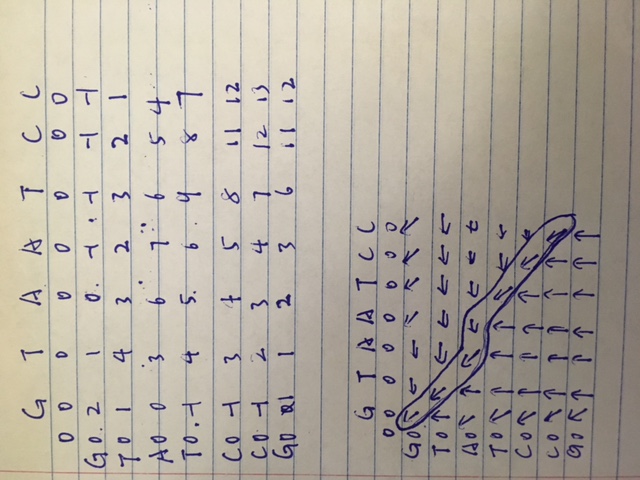 G T A A T C C
0 0 0 0 0 0 0 0
G 0 . 2 1 0 . -1 . -1 -1 -1
T 0 1 4 3 2 3 2 1
A 0 0 3 6 7 6 5 4
T 0 . -1 4 5 . 6 . 9 8 7
C 0 -1 3 4 5 8 11 12
C 0 -1 2 3 4 7 12 13
G 0 1 1 2 3 6 11 12
G T A A T C C
0 0 0 0 0 0 0 0
G 0 ↖ ← ← ↖ ↖ ↖ ↖
T 0 ↑ ↖ ← ← ← ← ←
A 0 ↖ ↑ ↖ ← ← ← ←
T 0 ↖ ↑ ↑ ↑ ↖ ← ←
C 0 ↖ ↑ ↑ ↑ ↑ ↖
C 0 ↖ ↑ ↑ ↑ ↑ ↑ ↖
G 0 ↖ ↑ ↑ ↑ ↑ ↑ ↑